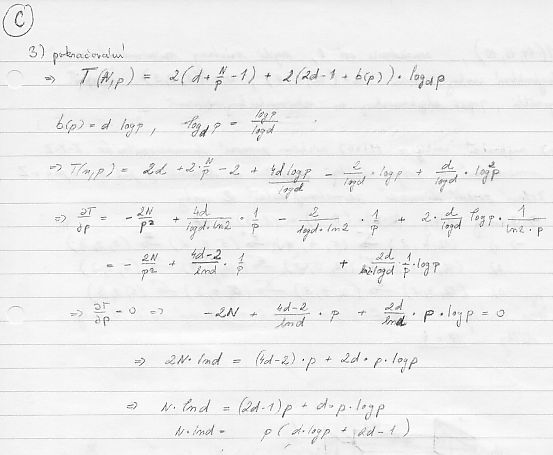 C
3) pokračování
⇒ T(N,p) = 2(d + N/p − 1) + 2(2d−1 + b(p)) · log_d p
b(p) = d log p , log_d p = log p / log d
⇒ T(n,p) = 2d + 2·N/p − 2 + 4d log p / log d − 2/log d · log p + d/log d · log² p
⇒ ∂T/∂p = − 2N/p² + 4d/(log d · ln 2) · 1/p − 2/(log d · ln 2) · 1/p + 2 · d/log d · log p · 1/(ln 2 · p)
= − 2N/p² + (4d−2)/ln d · 1/p + 2d/log d · 1/p · log p
⇒ ∂T/∂p = 0 ⇒ −2N + (4d−2)/ln d · p + 2d/ln d · p · log p = 0
⇒ 2N · ln d = (4d−2) · p + 2d · p · log p
⇒ N · ln d = (2d−1) p + d · p · log p
N · ln d = p ( d · log p + 2d − 1 )